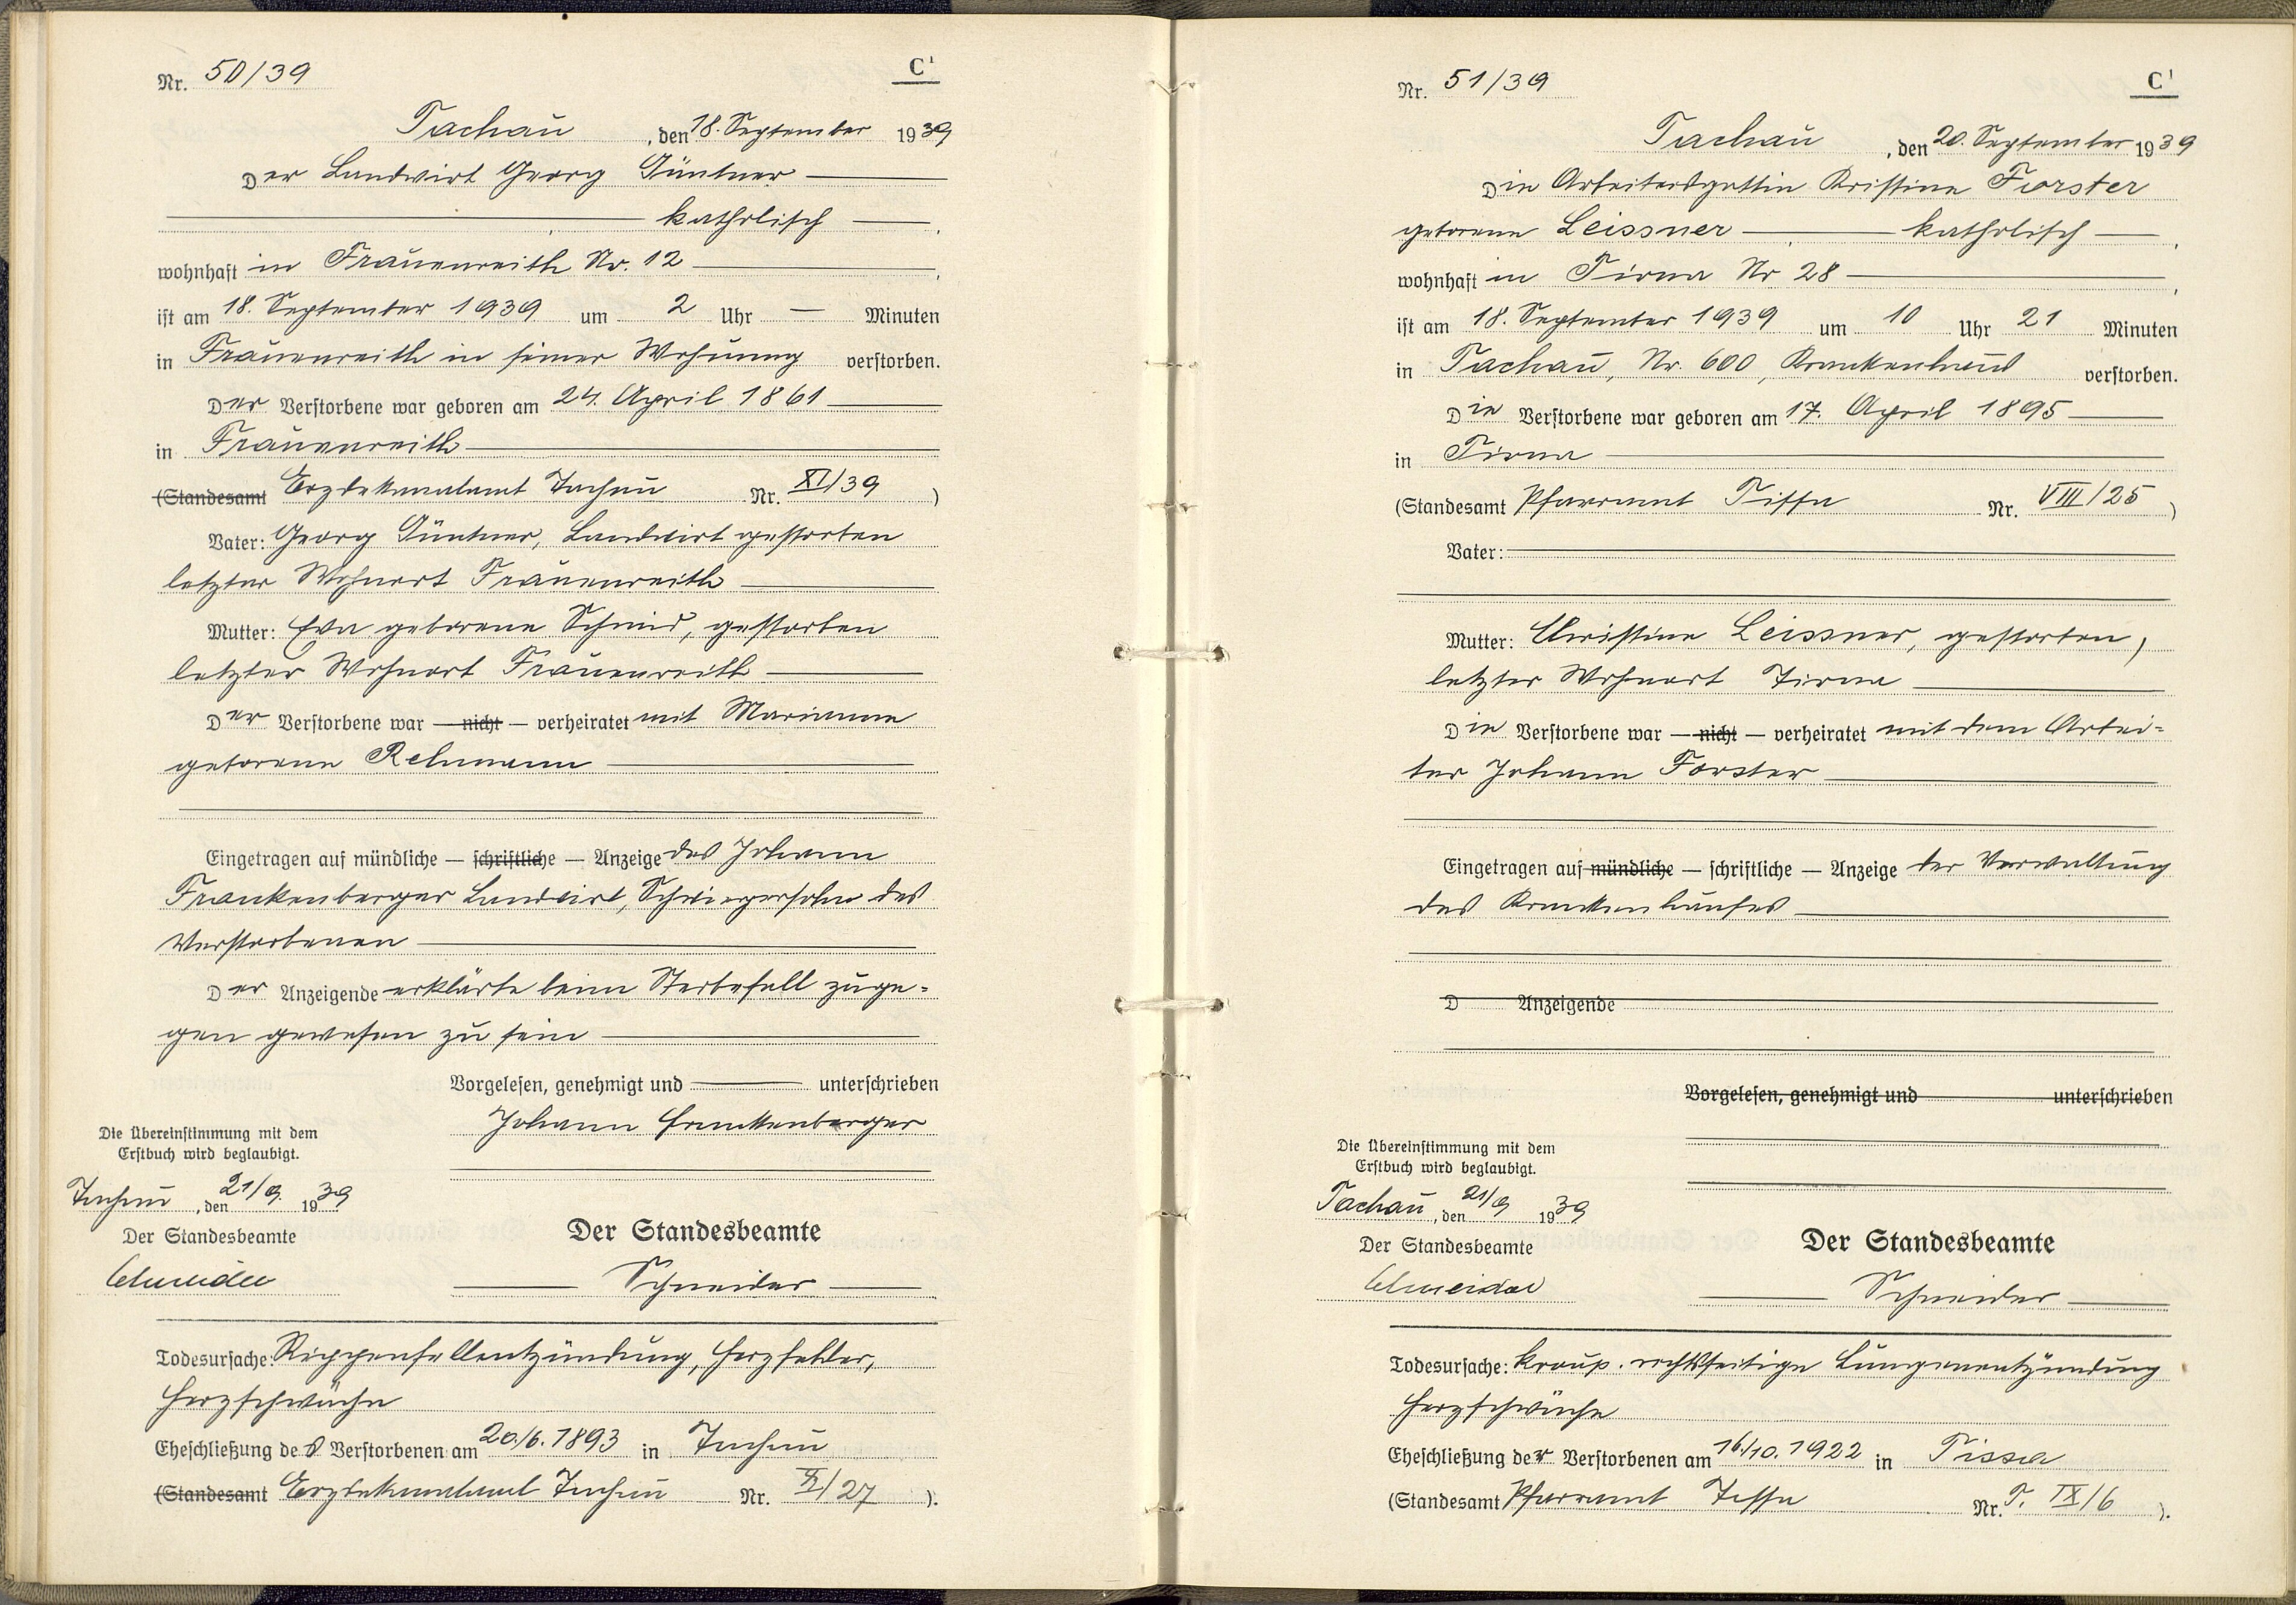 Nr. 50/39
C¹
Tachau, den 18. September 1939
Der Landwirt Georg Güntner
katholisch,
wohnhaft in Frauenreith Nr. 12,
ist am 18. September 1939 um 2 Uhr — Minuten
in Frauenreith in seiner Wohnung verstorben.
Der Verstorbene war geboren am 24. April 1861
in Frauenreith
(Standesamt Erzdekanalamt Tachau Nr. XI/39)
Vater: Georg Güntner, Landwirt gestorben
letzter Wohnort Frauenreith
Mutter: Eva geborene Schmid, gestorben
letzter Wohnort Frauenreith
Der Verstorbene war — nicht — verheiratet mit Marianne
geborene Rehmann
Eingetragen auf mündliche — schriftliche — Anzeige des Johann
Frankenberger Landwirt, Schwiegersohn des
Verstorbenen
Der Anzeigende erklärte beim Sterbefall zuge-
gen gewesen zu sein
Vorgelesen, genehmigt und unterschrieben
Johann Frankenberger
Die Übereinstimmung mit dem
Erstbuch wird beglaubigt.
Tachau, den 21/9. 1939
Der Standesbeamte
Schneider
Der Standesbeamte
Schneider
Todesursache: Rippenfellentzündung, Herzfehler,
Herzschwäche
Eheschließung des Verstorbenen am 20./6. 1893 in Tachau
(Standesamt Erzdekanalamt Tachau Nr. X/27).
Nr. 51/39
C¹
Tachau, den 20. September 1939
Die Arbeitersgattin Kristina Forster
geborene Leissner katholisch,
wohnhaft in Tirna Nr 28,
ist am 18. September 1939 um 10 Uhr 21 Minuten
in Tachau, Nr. 600, Krankenhaus verstorben.
Die Verstorbene war geboren am 17. April 1895
in Tirna
(Standesamt Pfarramt Tissa Nr. VIII/25)
Vater:
Mutter: Christina Leissner, gestorben,
letzter Wohnort Tirna
Die Verstorbene war — nicht — verheiratet mit dem Arbei-
ter Johann Forster
Eingetragen auf mündliche — schriftliche — Anzeige der Verwaltung
des Krankenhauses
D Anzeigende
Vorgelesen, genehmigt und unterschrieben
Die Übereinstimmung mit dem
Erstbuch wird beglaubigt.
Tachau, den 21/9 1939
Der Standesbeamte
Schneider
Der Standesbeamte
Schneider
Todesursache: kroup. rechtseitige Lungenentzündung
Herzschwäche
Eheschließung der Verstorbenen am 16./10. 1922 in Tissa
(Standesamt Pfarramt Tissa Nr. T. IX/6).